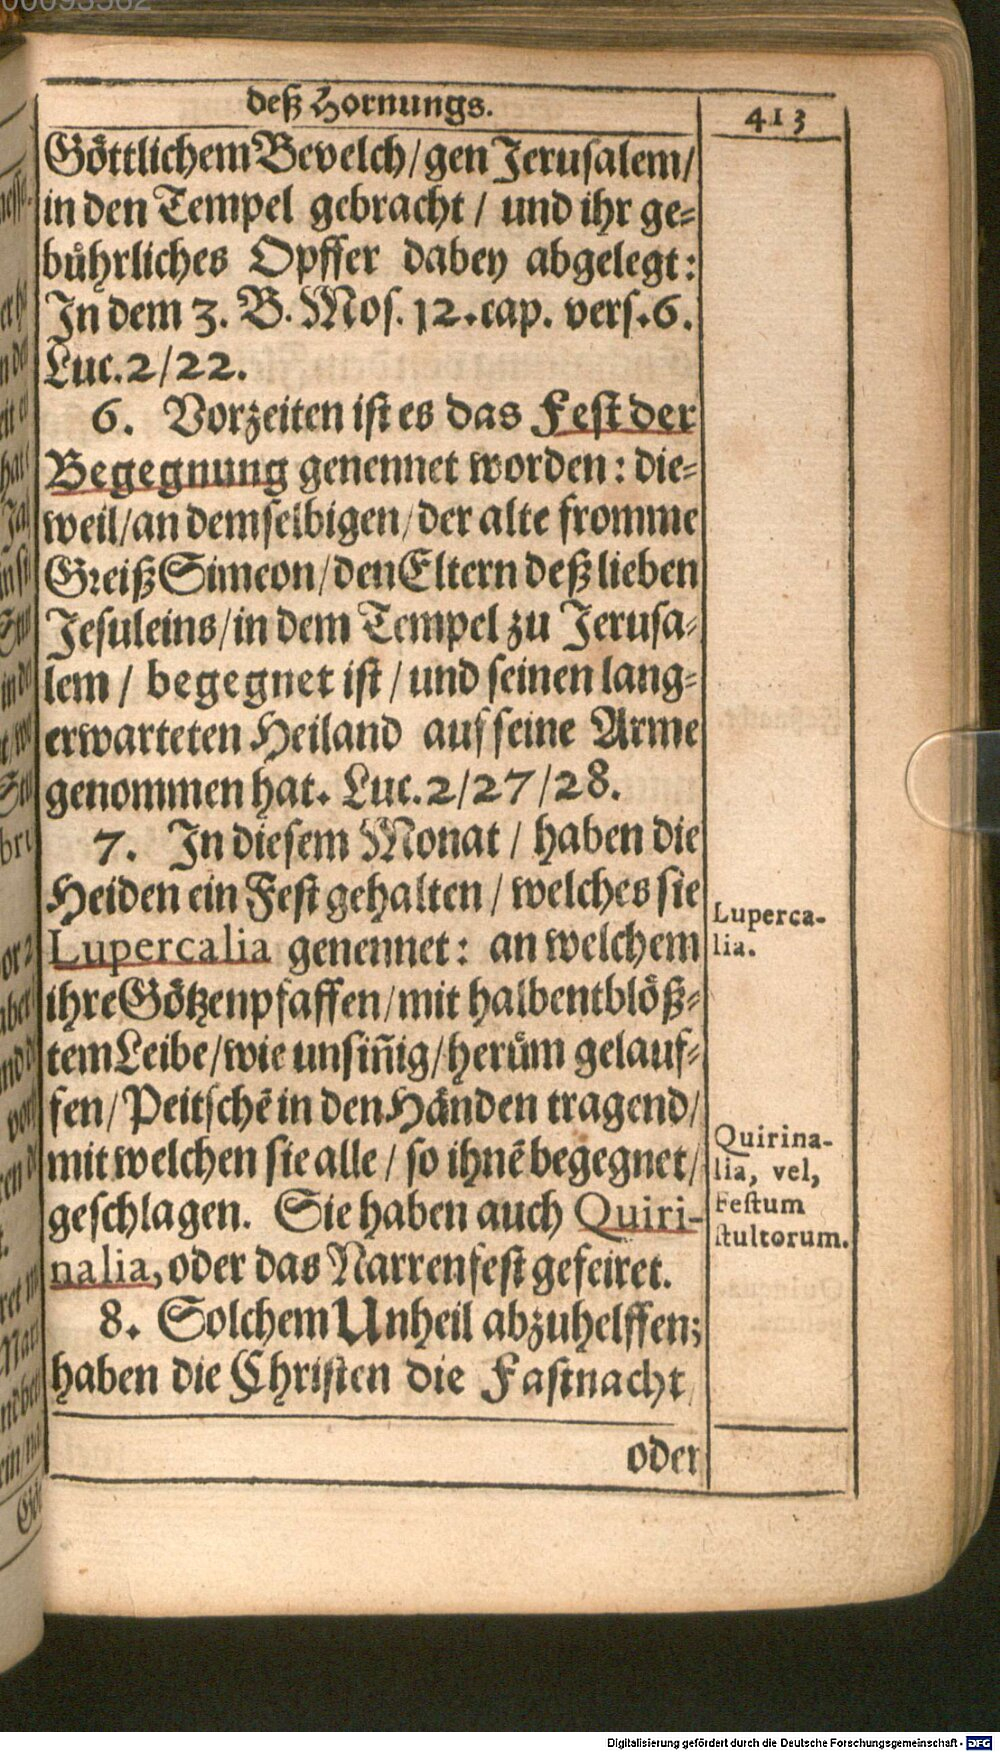 deß Hornungs.
413
Göttlichem Bevelch/gen Jerusalem/
in den Tempel gebracht / und ihr ge-
bührliches Opffer dabey abgelegt:
In dem 3. B. Mos. 12. cap. vers. 6.
Luc. 2/22.
6. Vorzeiten ist es das Fest der
Begegnung genennet worden: die-
weil/an demselbigen/der alte fromme
Greiß Simeon/den Eltern deß lieben
Jesuleins/in dem Tempel zu Jerusa-
lem / begegnet ist / und seinen lang-
erwarteten Heiland auf seine Arme
genommen hat. Luc. 2/27/28.
7. In diesem Monat / haben die
Heiden ein Fest gehalten / welches sie
Lupercalia genennet: an welchem
ihre Götzenpfaffen/mit halbentblöß-
tem Leibe/wie unsiñig/herům gelauf-
fen/Peitschē in den Händen tragend/
mit welchen sie alle / so ihnē begegnet/
geschlagen. Sie haben auch Quiri-
nalia, oder das Narrenfest gefeiret.
8. Solchem Unheil abzuhelffen;
haben die Christen die Fastnacht
oder
Luperca-
lia.
Quirina-
lia, vel,
Festum
stultorum.
Digitalisierung gefördert durch die Deutsche Forschungsgemeinschaft - DFG